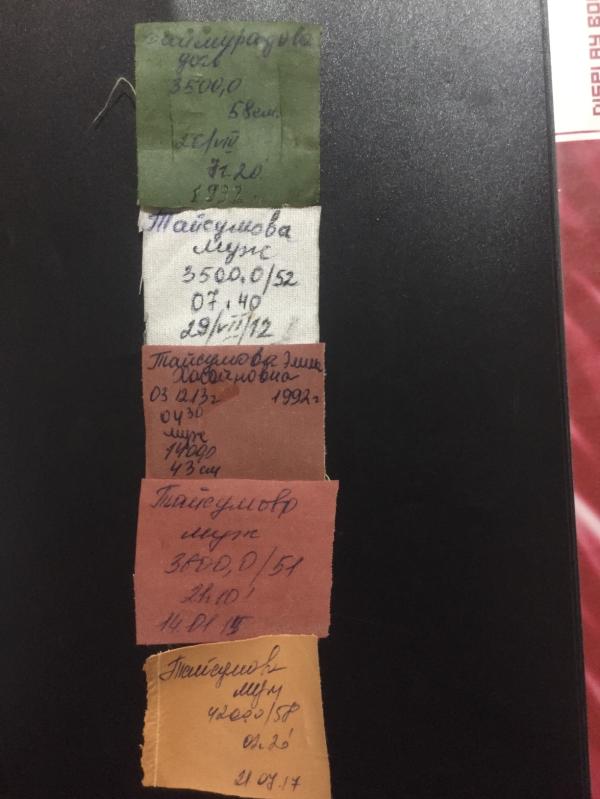 Таймурадова
доч
3500,0
58см.
25/VIII
7ч.20
1992г.
Тайсумова
муж
3500,0/52
07.40
29/VII/12
Тайсумова Элина
Хасайновна
03 12 13г 1992г
04 30
муж
1400,0
43 см
Тайсумова
муж
3800,0/51
2ч.10'
14.01.15
Тайсумова
муж
4200,0/58
02.20'
21.07.17
DISPLAY